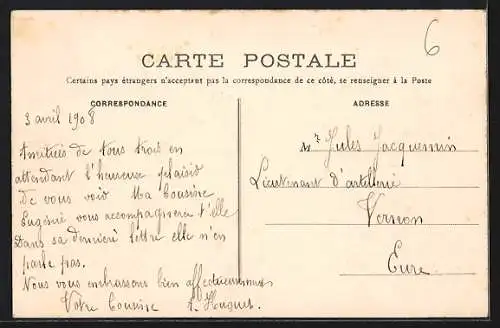 6
CARTE POSTALE
Certains pays étrangers n'acceptent pas la correspondance de ce côté, se renseigner à la Poste
CORRESPONDANCE
3 avril 1908
Amitiés de tous trois en
attendant l'heureuse plaisir
De vous voir Ma Cousine
Eugénie vous accompagnera t'elle
Dans sa dernière lettre elle n'en
parle pas.
Nous vous embrassons bien affectueusement
Votre Cousine A. Huguet
ADRESSE
Mr Jules Jacquemin
Lieutenant d'artillerie
Vernon
Eure